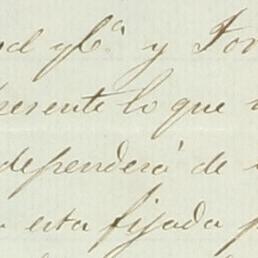 y Cª y Tor
presente lo que
dependerá de
esta fijada p